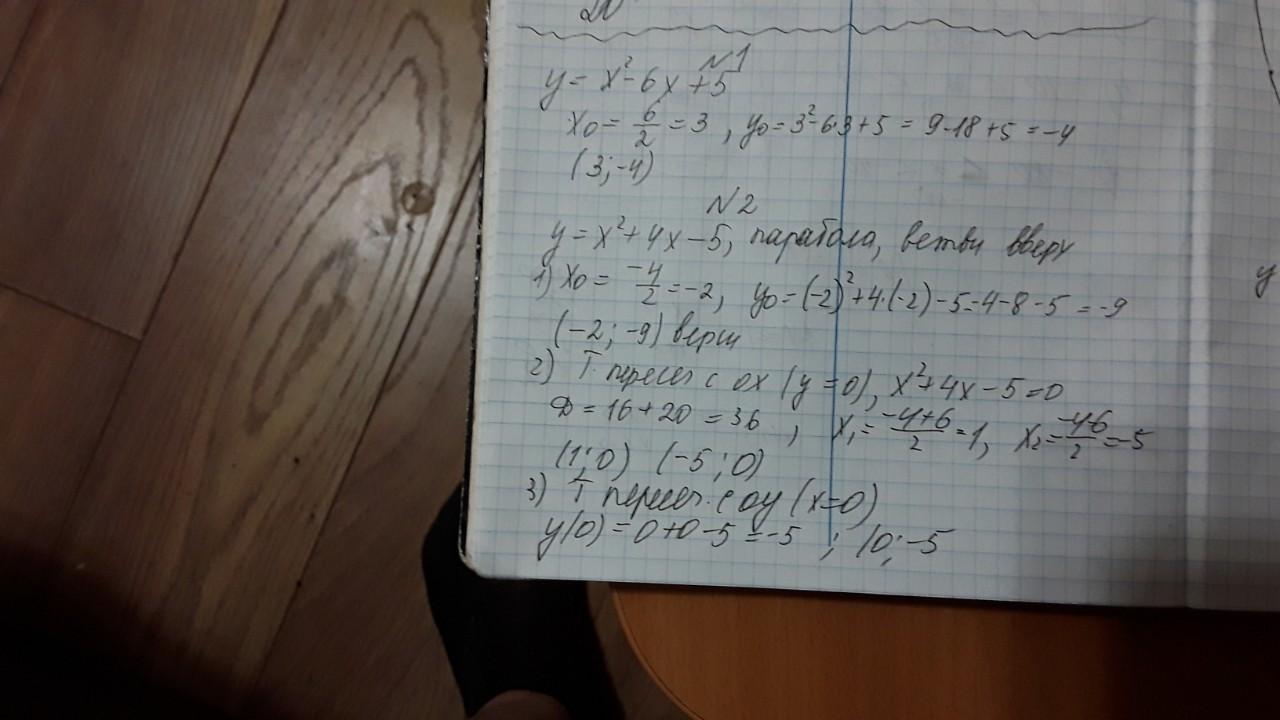 20
N1
y = x² - 6x + 5
x0 = 6/2 = 3 , y0 = 3² - 6·3 + 5 = 9 - 18 + 5 = -4
(3; -4)
N2
y = x² + 4x - 5, парабола, ветви вверх
1) x0 = -4/2 = -2, y0 = (-2)² + 4·(-2) - 5 = 4 - 8 - 5 = -9
(-2; -9) верш
2) Т пересеч с ox (y = 0), x² + 4x - 5 = 0
D = 16 + 20 = 36 , x₁ = -4+6/2 = 1, x₂ = -4-6/2 = -5
(1; 0) (-5; 0)
3) Т пересеч. с oy (x = 0)
y(0) = 0 + 0 - 5 = -5 ; (0; -5
y